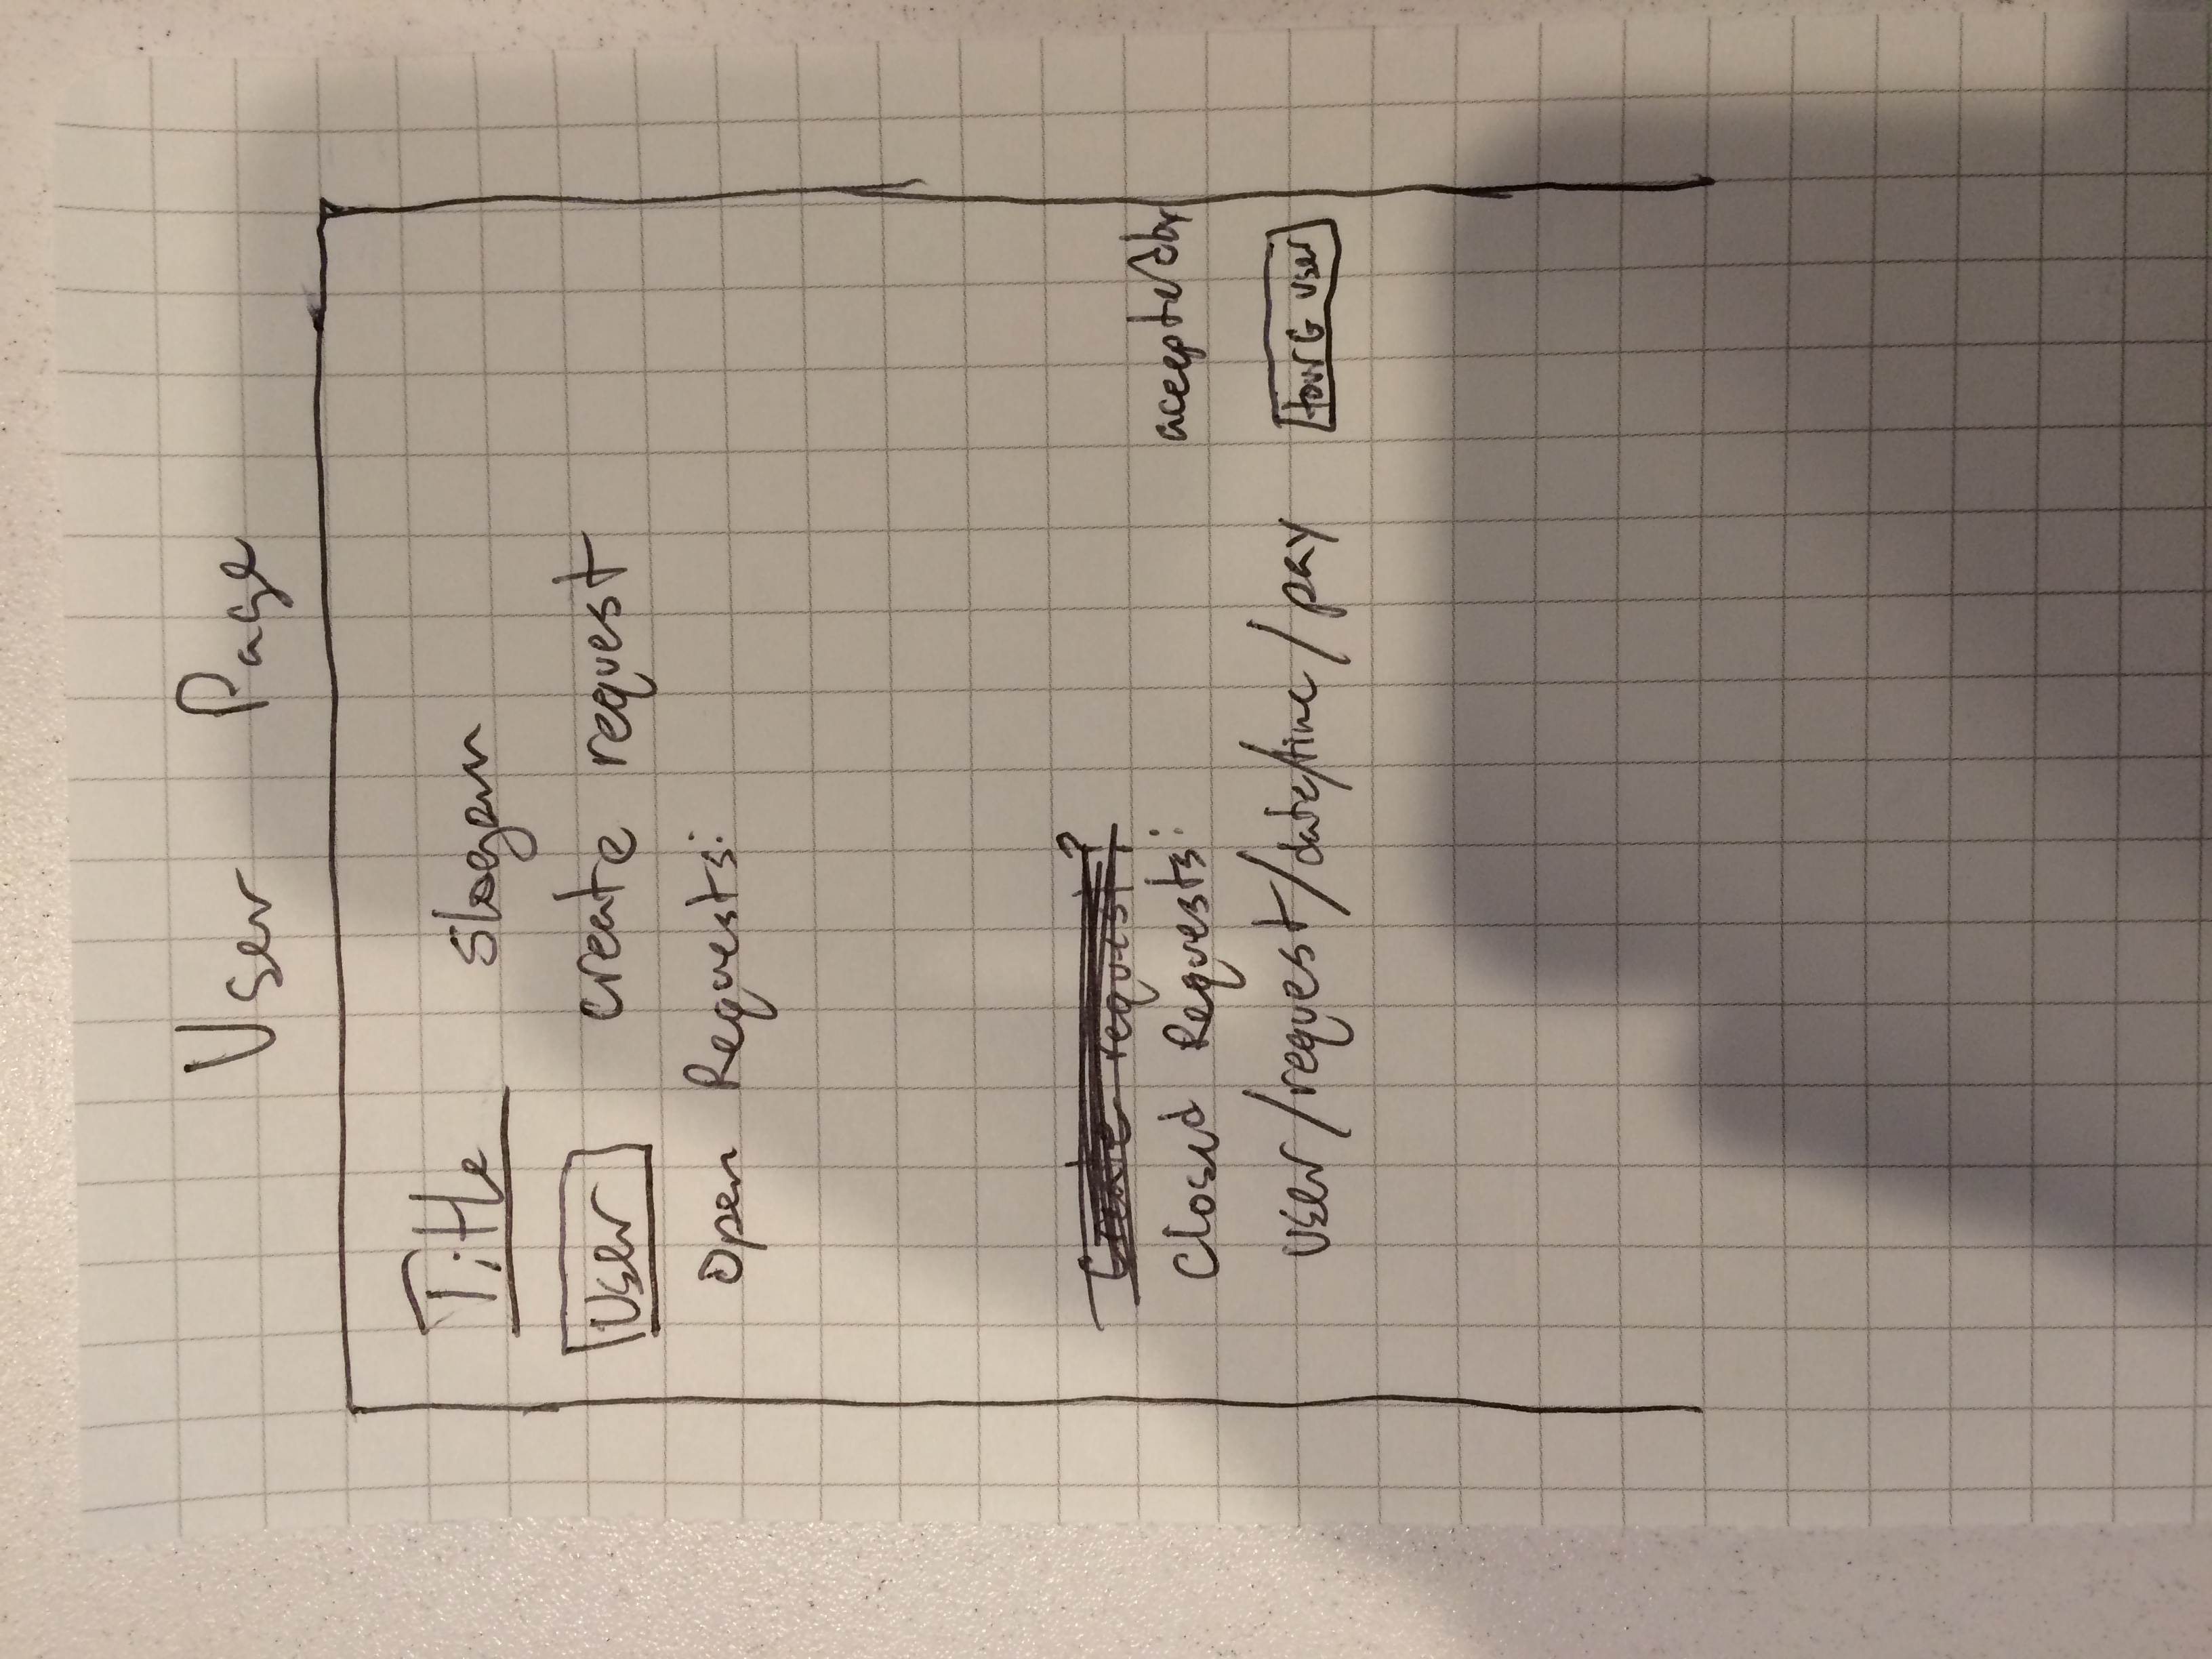 User Page
Title slogan
User create request
Open Requests:
Create request?
Closed Requests: accepted by
user/request/date/time/pay tour G user